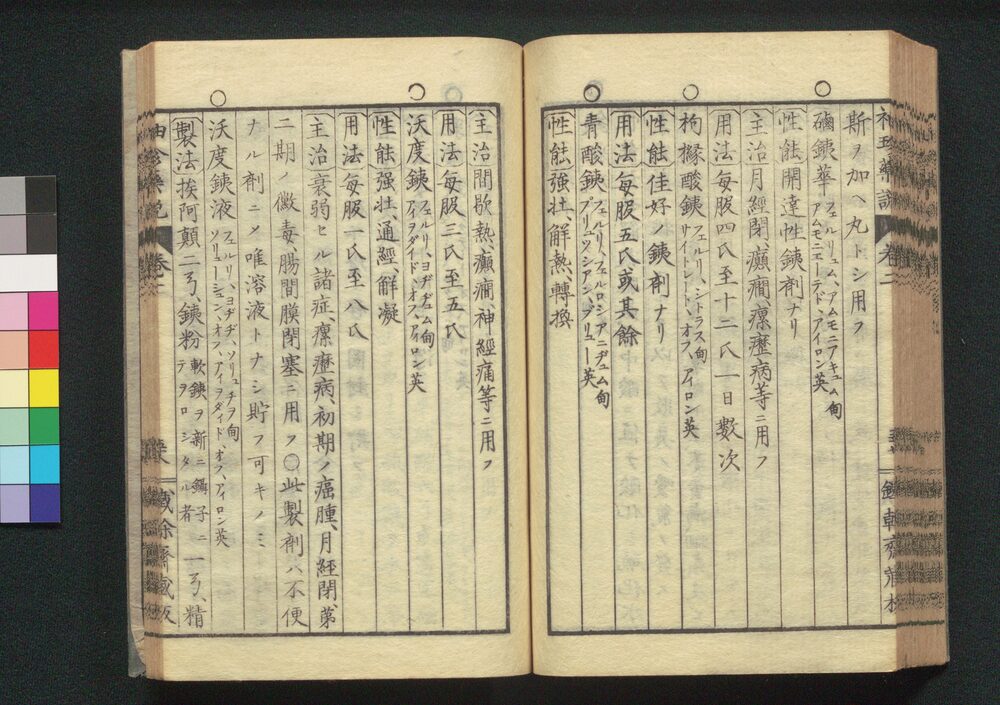 斯ヲ加ヘ丸トシ用フ
磠銕華 フェルリュム、アムモニアキュム甸
アムモニエーテド、アイロン英
性能開達性銕剤ナリ
主治月經閉、癲癇、瘰癧病等ニ用フ
用法每服四氏至十二氏一日數次
枸櫞酸銕 フェルリ、シトラス甸
サイトレート、オフ、アイロン英
性能佳好ノ銕剤ナリ
用法每服五氏或其餘
青酸銕 フェルリ、フェルロシアニヂュム甸
プリュッシアン、ブリュー英
性能強壮、解熱、轉換
主治間歇熱、癲癇神經痛等ニ用フ
用法每服三氏至五氏
沃度銕 フェルリ、ヨヂヂュム甸
アイヲダイド、オフ、アイロン英
性能强壮、通經、解凝
用法每服一氏至八氏
主治衰弱セル諸症瘰癧病、初期ノ癌腫、月經閉、第
二期ノ黴毒、腸間膜閉塞ニ用フ〇此製剤ハ不便
ナル剤ニノ唯溶液トナシ貯フ可キノミ
沃度銕液 フェルリ、ヨヂヂ、ソリュチヲ甸
ソリューシュン、オフ、アイヲダイド、オフ、アイロン英
製法挨阿顛二弓、銕粉 軟銕ヲ新ニ鑢子ニ
テヲロシタル者 一弓、精
卷二